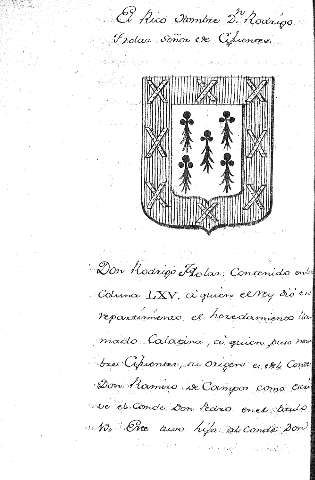 El Rico Hombre Dn. Rodrigo
Flolaz Señor de Cifuentes.
Don Rodrigo Flolaz. Contenido en la
Coluna LXV. á quien el rey dió en
repartimiento el heredamiento lla
mado Calatina, á quien puso nom
bre Cifuentes, su origen es del Conde
Don Ramiro de Campos como escri
ve el Conde Don Pedro en el titulo
Este tuvo hijo al Conde Don